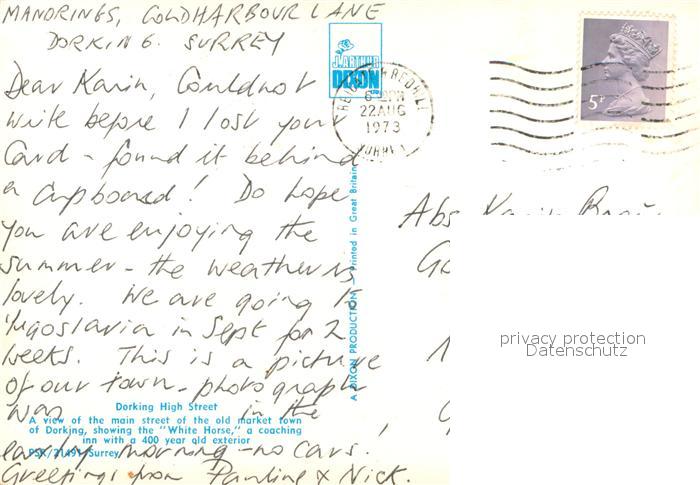 MANDRINGS, COLDHARBOUR LANE
DORKING. SURREY
J. ARTHUR
DIXON
Dear Karin, Could not
write before I lost your
Card - found it behind
a cupboard! Do hope
you are enjoying the
summer - the weather is
lovely. We are going to
Yugoslavia in Sept for 2
weeks. This is a picture
of our town - photograph
was in the
early morning - no cars!
Greetings from Pauline & Nick.
Dorking High Street
A view of the main street of the old market town
of Dorking, showing the "White Horse," a coaching
inn with a 400 year old exterior
PSX/21491 Surrey
A DIXON PRODUCTION — Printed in Great Britain
22 AUG
1973
SURREY
5P
Abs. Karin
privacy protection
Datenschutz